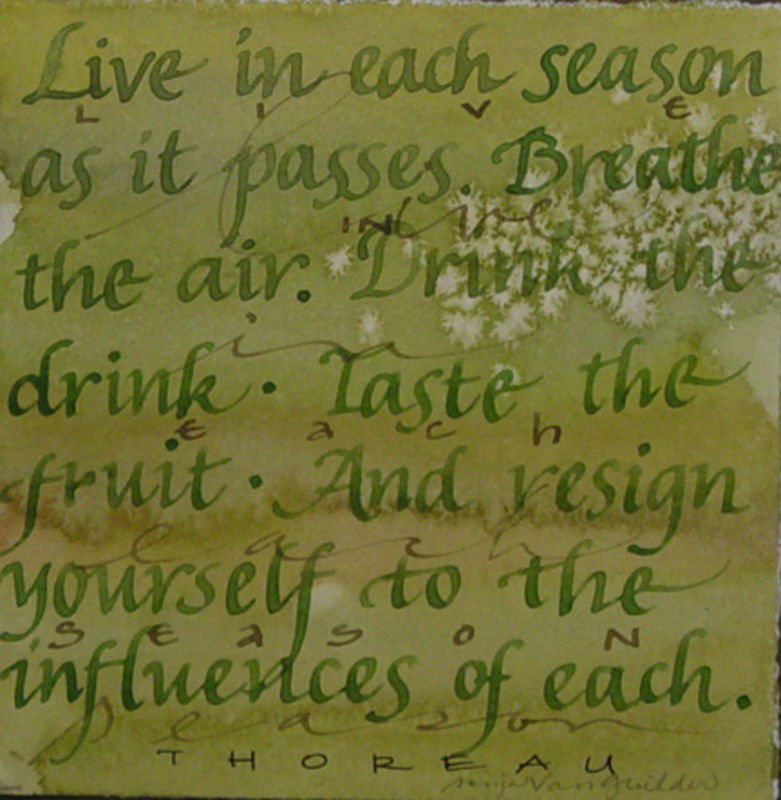 Live in each season
L I V E
as it passes. Breathe
IN live
the air. Drink the
in
drink. Taste the
each
fruit. And resign
each
yourself to the
SEASON
influences of each.
season
THOREAU
Sonja VanGuilder